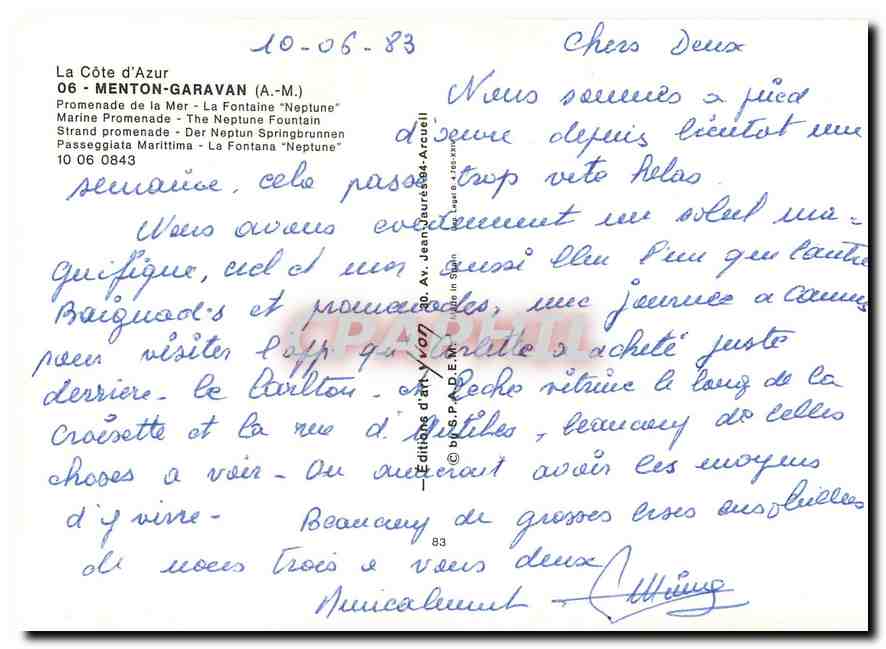 10-06-83
Chers Deux
La Côte d'Azur
06 - MENTON-GARAVAN (A.-M.)
Promenade de la Mer - La Fontaine "Neptune"
Marine Promenade - The Neptune Fountain
Strand promenade - Der Neptun Springbrunnen
Passeggiata Marittima - La Fontana "Neptune"
10 06 0843
Nous sommes a pied
d'oeuvre depuis bientot une
semaine, cela passe trop vite helas
Nous avons evidemment un soleil ma-
gnifique, ciel et mer aussi bleu l'un que l'autre
Baignades et promenades, une journee a Cannes
pour visiter l'app que a acheté juste
derriere - le Carlton - et Leche vitrine le long de la
Croisette et la rue d'Antibes, beaucoup de belles
choses a voir - On aimerait avoir les moyens
d'y vivre - Beaucoup de grosses bises ensoleillees
de nous trois a vous deux
Amicalement -
— Editions d'art Yvon 30, Av. Jean-Jaurès 94-Arcueil
© by S.P.A.D.E.M. Made in Spain Dep. Legal B. 4.765-XXIV
83
CPAPHIL